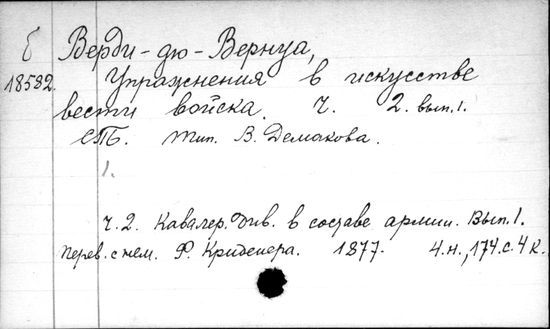 б Верди-дю-Вернуа,
18582. Упражнения в искусстве
вести войска. Ч. 2. вып. 1.
СПБ. Тип. В. Демакова.
1.
Ч. 2. Кавалер. Див. в составе армии. Вып. 1.
Перев. с нем. Ф. Криденера. 1877. 4.н., 174.с. 4 к.